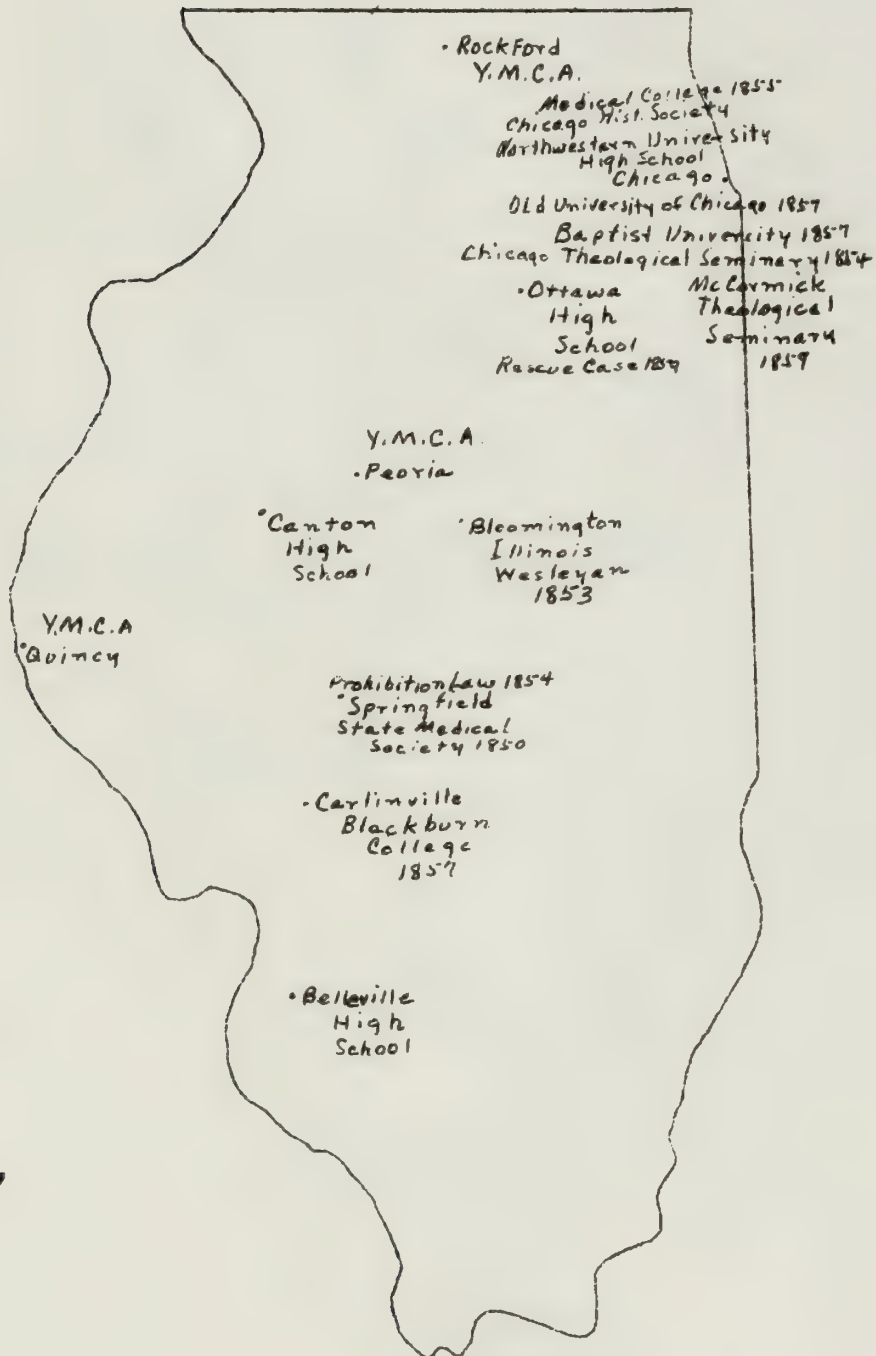 Rockford
Y.M.C.A.
Medical College 1855
Chicago Hist. Society
Northwestern University
High School
Chicago
Old University of Chicago 1857
Baptist University 1857
Chicago Theological Seminary 1854
Ottawa
High
School
Rescue Case 1859
McCormick
Theological
Seminary
1859
Y.M.C.A.
Peoria
Canton
High
School
Bloomington
Illinois
Wesleyan
1853
Y.M.C.A
Quincy
Prohibition Law 1854
Springfield
State Medical
Society 1850
Carlinville
Blackburn
College
1857
Belleville
High
School